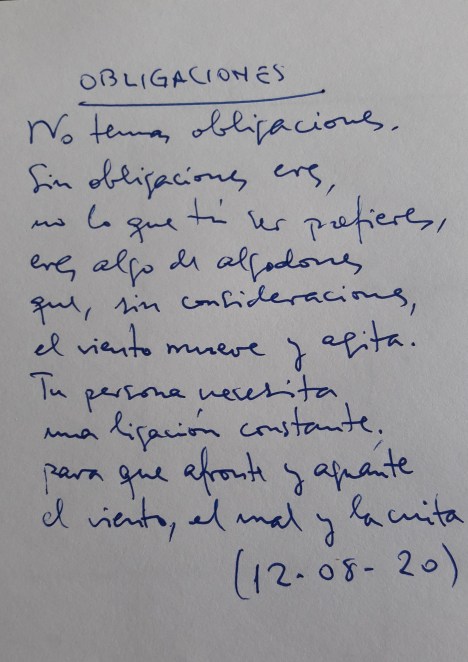 OBLIGACIONES
No temas obligaciones.
Sin obligaciones eres,
no lo que tú ser prefieres,
eres algo de algodones
que, sin consideraciones,
el viento mueve y agita.
Tu persona necesita
una ligación constante,
para que afronte y aguante
el viento, el mal y la cuita
(12-08-20)